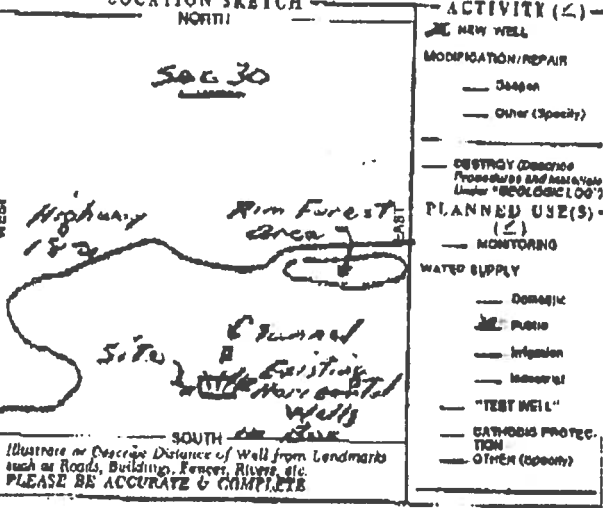 LOCATION SKETCH
NORTH
Sec 30
WEST
Highway
189
Rim Forest
Area
EAST
Tunnel
Site
Existing
Horizontal
Wells
SOUTH
Illustrate or Describe Distance of Well from Landmarks
such as Roads, Buildings, Fences, Rivers, etc.
PLEASE BE ACCURATE & COMPLETE
ACTIVITY (✓)
NEW WELL
MODIFICATION/REPAIR
Deepen
Other (Specify)
DESTROY (Describe
Procedures and Materials
Under "GEOLOGIC LOG")
PLANNED USE(S)
(✓)
MONITORING
WATER SUPPLY
Domestic
Public
Irrigation
Industrial
"TEST WELL"
CATHODIC PROTEC-
TION
OTHER (Specify)